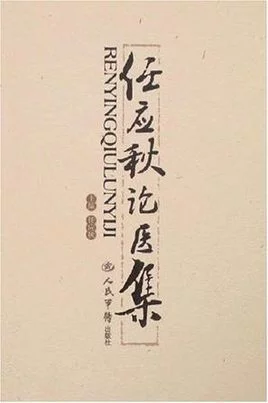 任应秋论医集
RENYINGQIULUNYIJI
主编
人民军医出版社